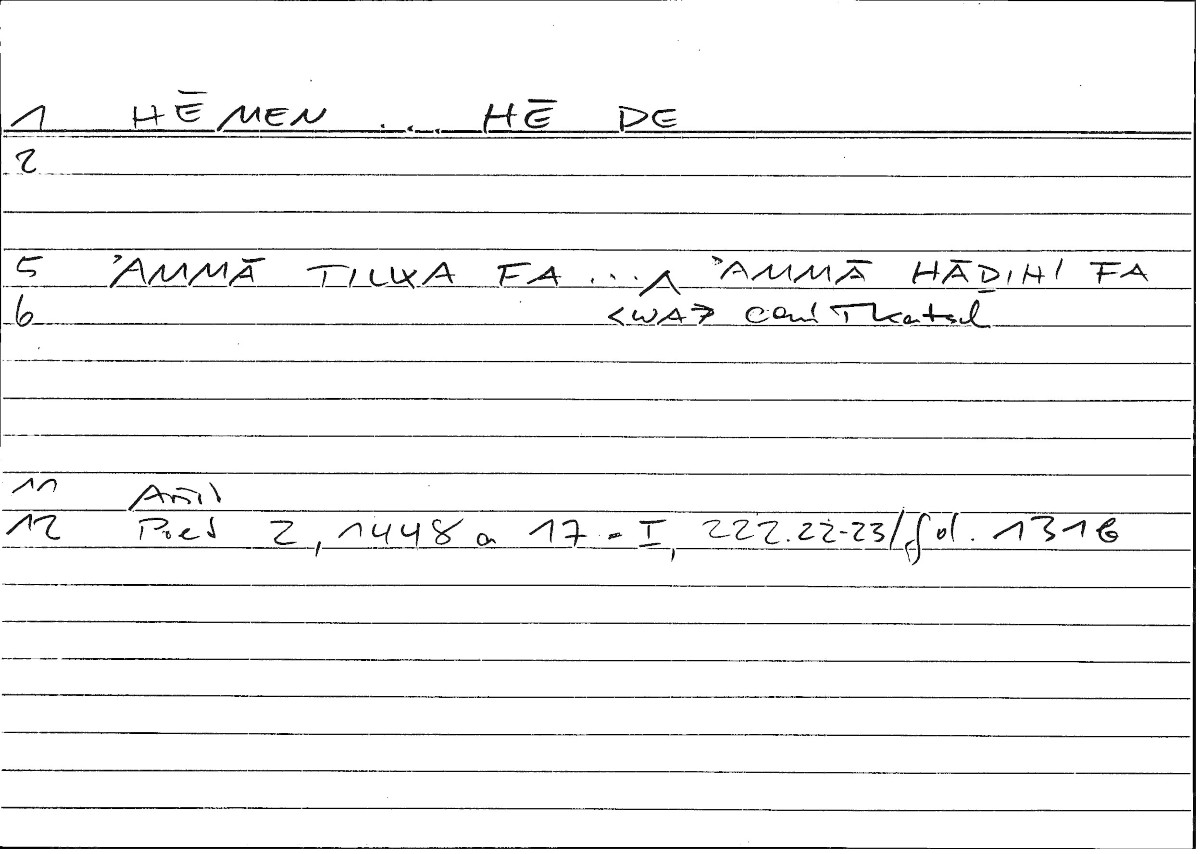 1 HĒ MEN ... HĒ DE
2
5 ʾAMMĀ TILKA FA ... ʌ ʾAMMĀ HĀḎIHI FA
6 <WA> coni Tkatsch
11 Arist
12 Poet 2, 1448 a 17 = I, 222.22-23/fol. 131b